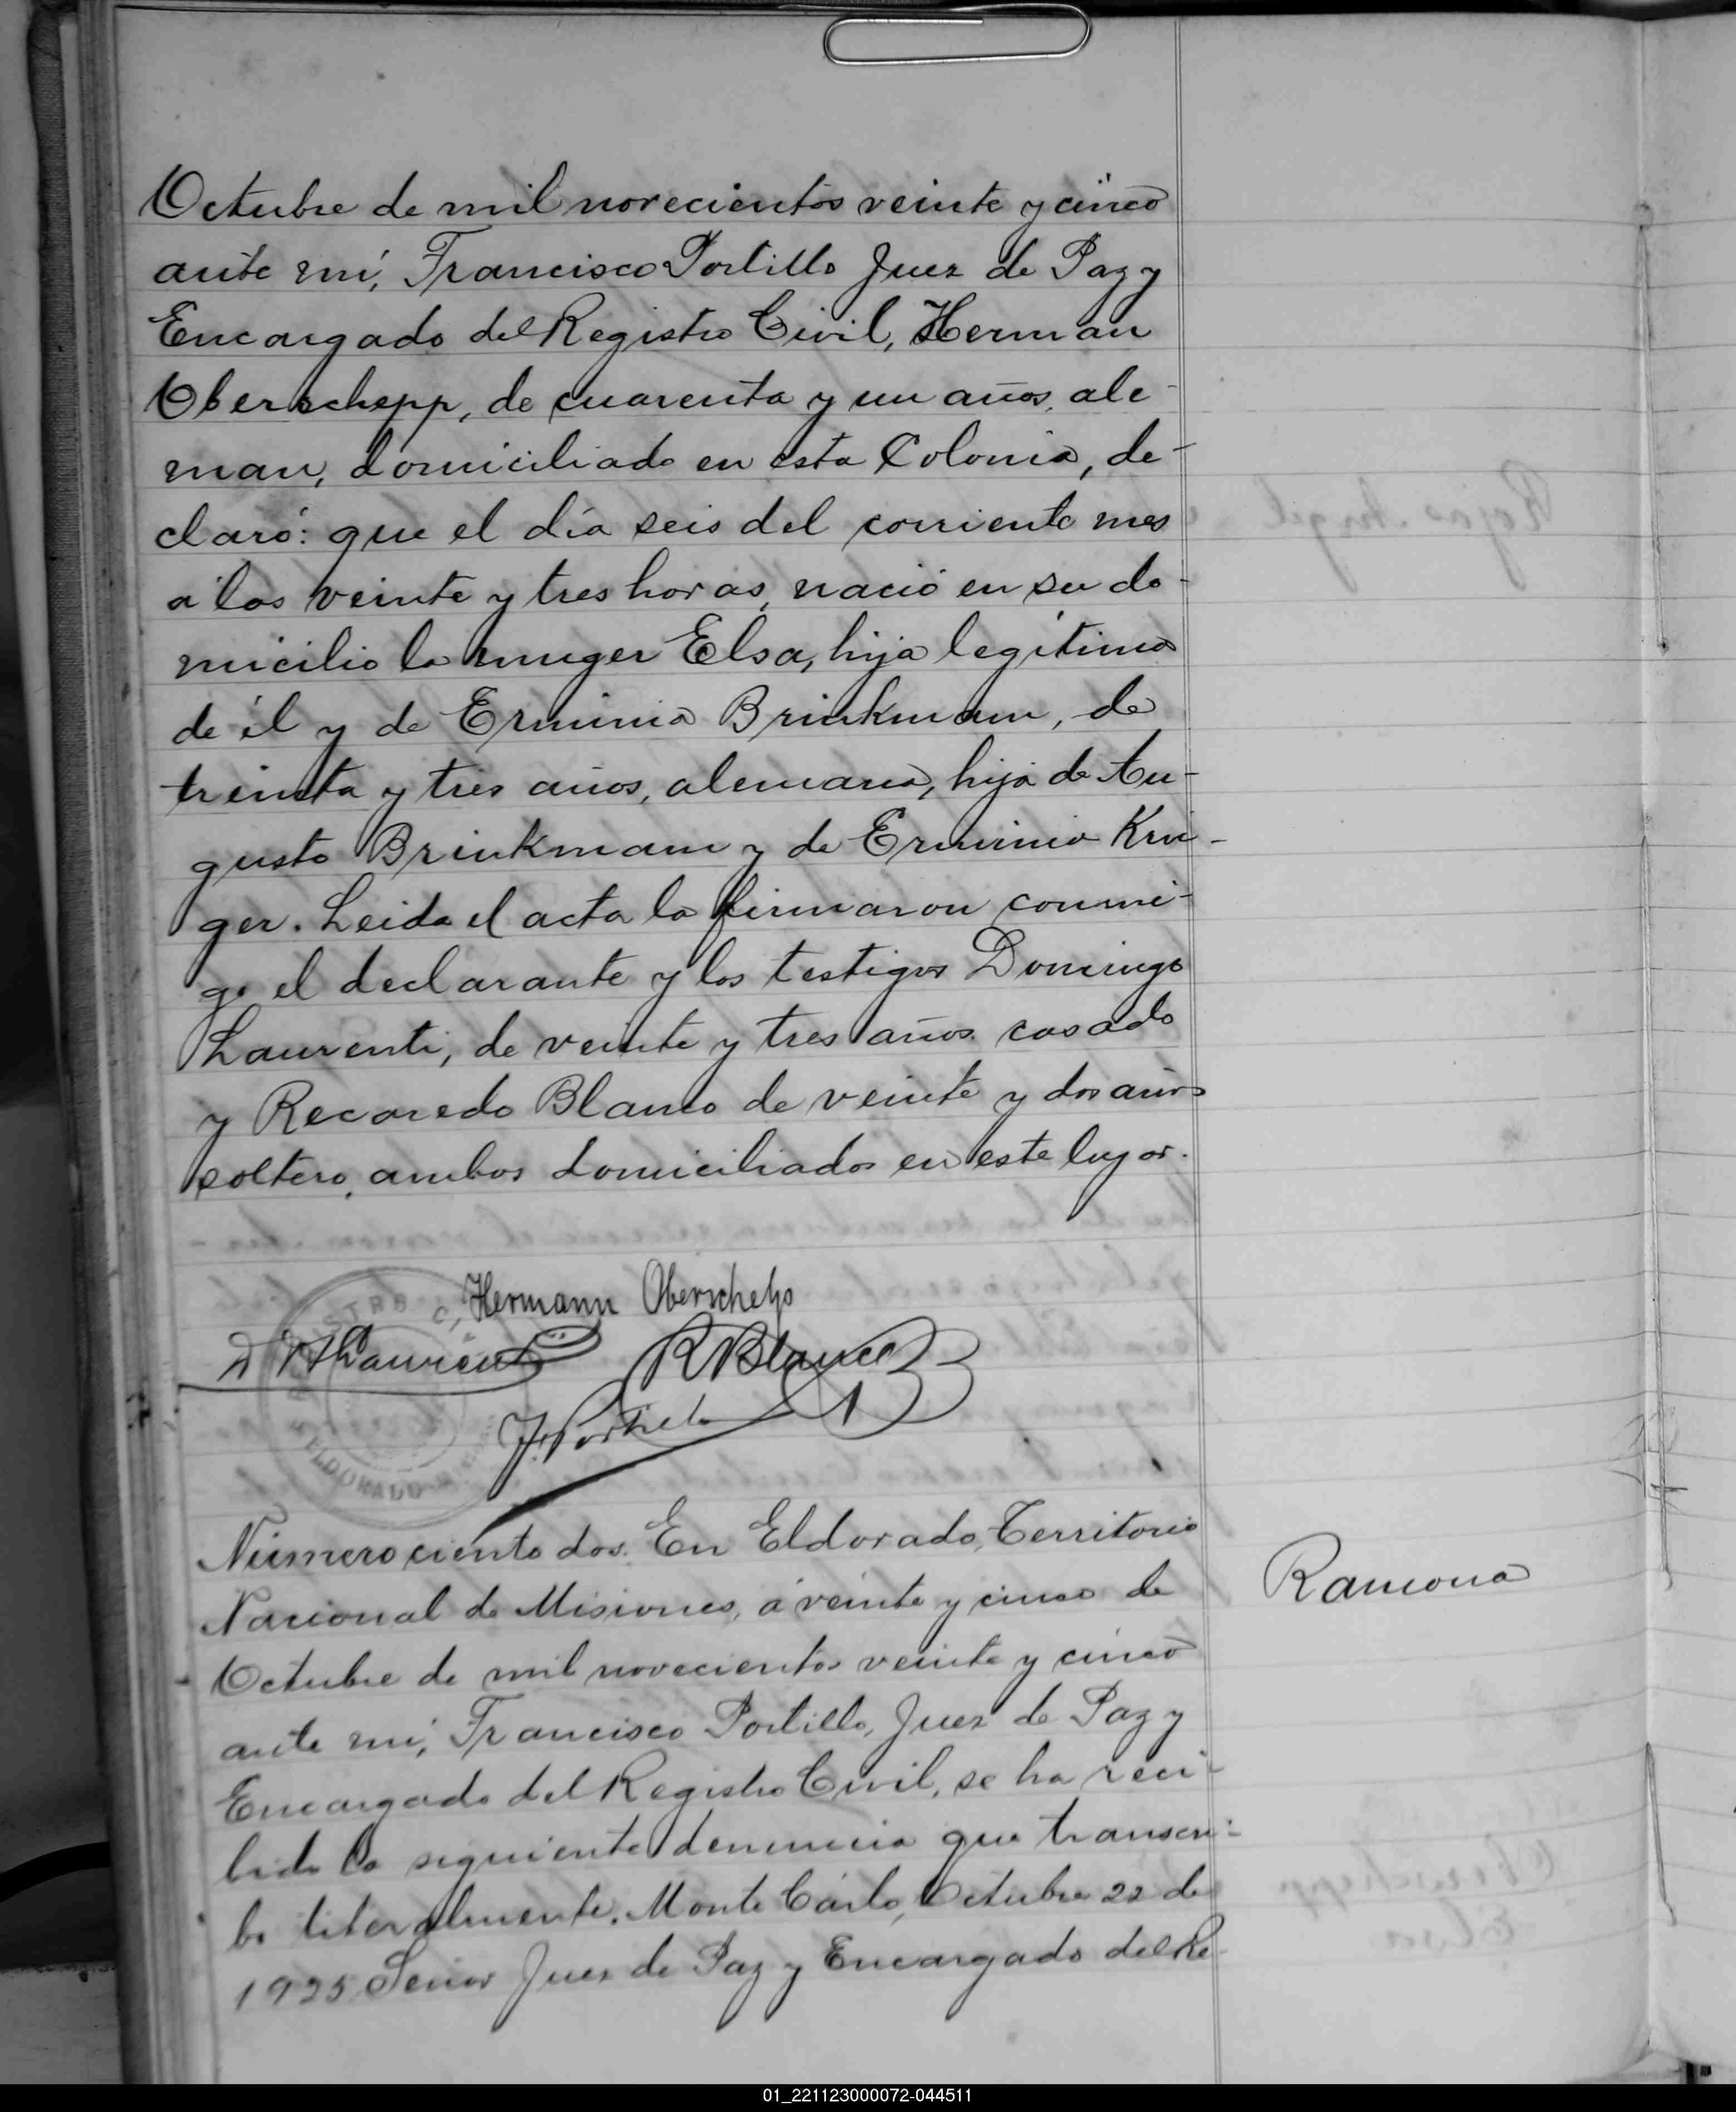 Octubre de mil novecientos veinte y cinco
ante mi, Francisco Portillo Juez de Paz y
Encargado del Registro Civil, Herman
Oberschepp, de cuarenta y un años, ale-
man, domiciliado en esta Colonia, de-
claró: que el día seis del corriente mes
a las veinte y tres horas, nació en su do-
micilio la muger Elsa, hija legítima
de él y de Erminia Brinkmann, de
treinta y tres años, alemana, hija de Au-
gusto Brinkmann y de Erminia Kru-
ger. Leida el acta la firmaron conmi-
go el declarante y los testigos Domingo
Laurenti, de veinte y tres años casado
y Recaredo Blanco de veinte y dos años
soltero, ambos domiciliados en este lugar.
Hermann Oberschelp
D Laurenti R Blanco
F. Portillo
ELDORADO
Número ciento dos. En Eldorado, Territorio
Nacional de Misiones, á veinte y cinco de
Octubre de mil novecientos veinte y cinco
ante mi, Francisco Portillo, Juez de Paz y
Encargado del Registro Civil, se ha reci-
bido la siguiente denuncia que transcri-
bo literalmente. Monte Carlo, Octubre 22 de
1925. Señor Juez de Paz y Encargado del Re-
Ramona
01_221123000072-044511